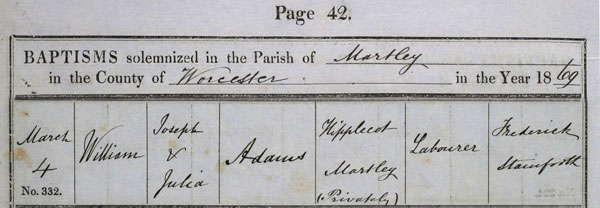 Page 42.
BAPTISMS solemnized in the Parish of Martley
in the County of Worcester in the Year 1869
March
4
No. 332.
William
Joseph
&
Julia
Adams
Kipplecot
Martley
(Privately)
Labourer
Frederick
Stainforth